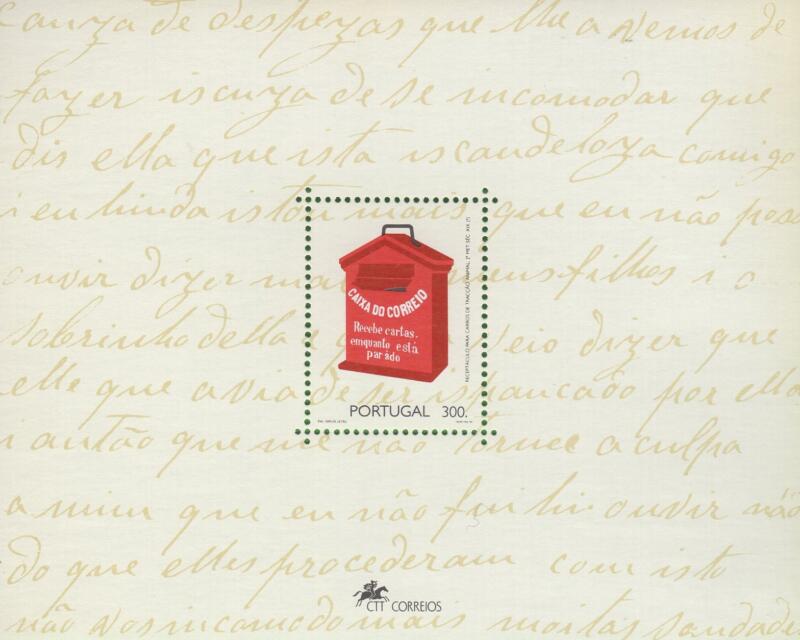 de despezas que lhe a vemos de
fazer iscuza de se incomodar que
dis ella que ista iscandeloza comigo
i eu hinda istou mais que eu não poss
ouvir dizer meus filhos i o
sobrinho della e veio dizer que
elle que avia de ser ispancado por ella
i antão que me não torne a culpa
a mim que eu não fui lir ouvir não
do que elles procederam com isto
não vos incomodo mais muitas saudade
CAIXA DO CORREIO
Recebe cartas,
emquanto está
parádo
RECEPTÁCULO PARA CARROS DE TRACÇÃO ANIMAL, 2ª MET. SÉC. XIX (?)
PORTUGAL 300.
CTT CORREIOS